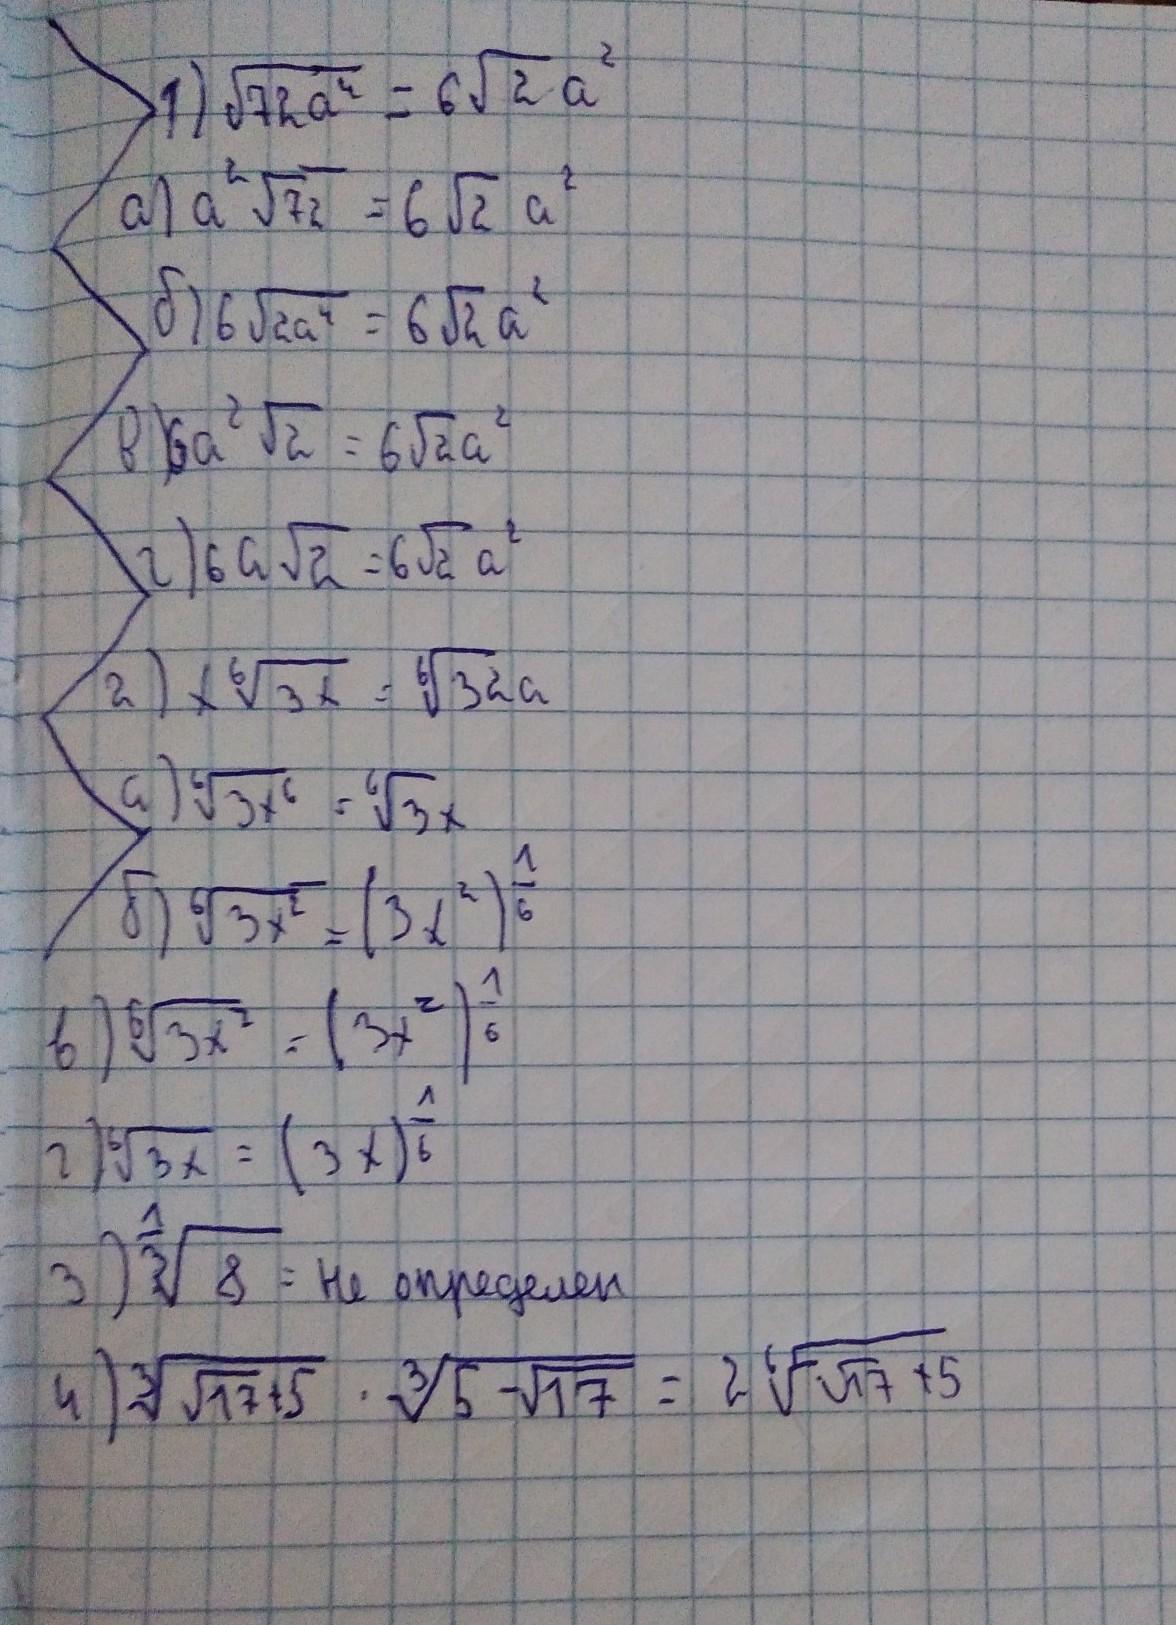 1) √72a⁴ = 6√2 a²
а) a²√72 = 6√2 a²
б) 6√2a⁴ = 6√2 a²
в) 6a²√2 = 6√2a²
г) 6a√2 = 6√2 a²
2) x⁶√3x = ⁶√32a
а) ⁶√3x⁶ = ⁶√3x
б) ⁶√3x² = (3x²)^(1/6)
в) ⁶√3x² = (3x²)^(1/6)
г) ⁶√3x = (3x)^(1/6)
3) ^(1/3)√8 = не определен
4) ³√(√17+5) · ³√(5-√17) = 2 ⁶√(√17+5)